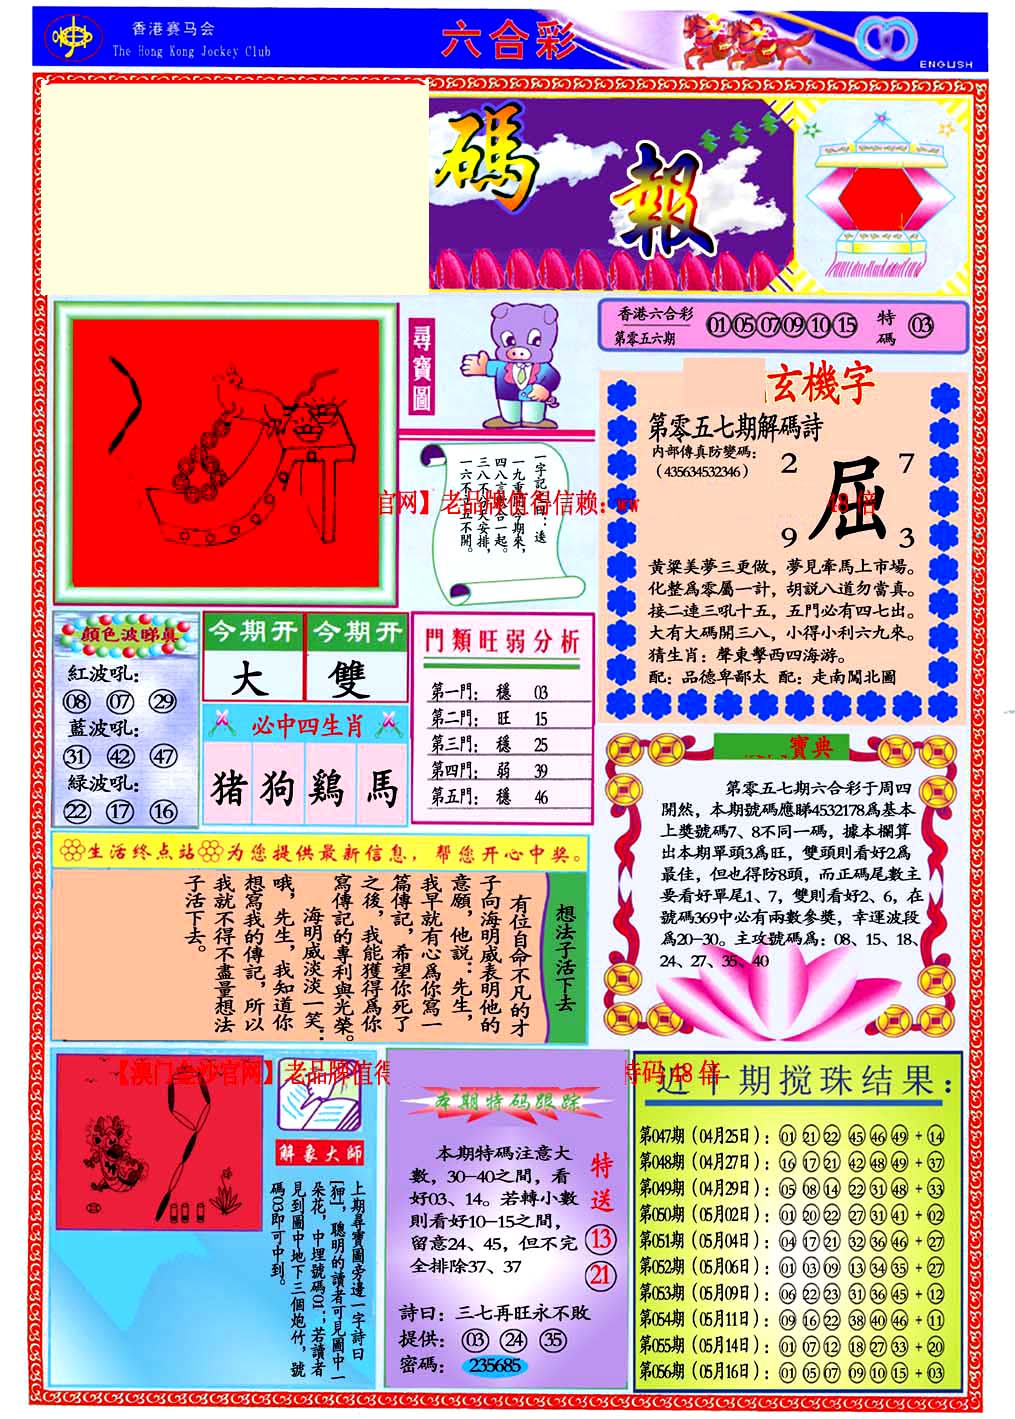 香港赛马会
The Hong Kong Jockey Club
六合彩
ENGLISH
碼報
尋寶圖
香港六合彩
第零五六期
01 05 07 09 10 15
特碼
03
一字記之曰：遠
一九重開今期來，
四八言數合一起。
三八不分天安排，
一六不立五不開。
玄機字
第零五七期解碼詩
内部傳真防變碼：
（435634532346）
2 7
屈
9 3
官网】老品牌值得信赖：ww
48 倍
黄粱美夢三更做，夢見牽馬上市場。
化整爲零屬一計，胡説八道勿當真。
接二連三吼十五，五門必有四七出。
大有大碼開三八，小得小利六九來。
猜生肖：聲東擊西四海游。
配：品德卑鄙太 配：走南闖北圖
顔色波睇真
紅波吼：
08 07 29
藍波吼：
31 42 47
緑波吼：
22 17 16
今期开 今期开
大 雙
必中四生肖
猪 狗 鷄 馬
門類旺弱分析
第一門： 穩 03
第二門： 旺 15
第三門： 穩 25
第四門： 弱 39
第五門： 穩 46
寶典
第零五七期六合彩于周四
開然，本期號碼應睇4532178爲基本
上獎號碼7、8不同一碼，據本欄算
出本期單頭3爲旺，雙頭則看好2爲
最佳，但也得防8頭，而正碼尾數主
要看好單尾1、7，雙則看好2、6，在
號碼369中必有兩數參獎，幸運波段
爲20-30。主攻號碼爲：08、15、18、
24、27、35、40
生活终点站 为您提供最新信息，帮您开心中奖。
想法子活下去
有位自命不凡的才
子向海明威表明他的
意願，他説：先生，
我早就有心爲你寫一
篇傳記，希望你死了
之後，我能獲得爲你
寫傳記的專利與光榮。
海明威淡淡一笑：
哦，先生，我知道你
想寫我的傳記，所以
我就不得不盡量想法
子活下去。
老品牌值得
特码 48 倍
解象大師
上期尋寶圖旁邊一字詩曰
[狎]，聰明的讀者可見圖中一
朵花，中埋號碼01；若讀者
見到圖中地下三個炮竹，號
碼03即可中到。
本期特码跟踪
本期特碼注意大
數，30-40之間，看
好03、14。若轉小數
則看好10-15之間，
留意24、45，但不完
全排除37、37
特送
13
21
詩曰：三七再旺永不敗
提供： 03 24 35
密碼： 235685
近十期搅珠结果：
第047期（04月25日）：01 21 22 45 46 49 + 14
第048期（04月27日）：16 17 21 42 48 49 + 37
第049期（04月29日）：05 08 14 22 31 48 + 33
第050期（05月02日）：01 20 22 27 31 41 + 02
第051期（05月04日）：04 17 21 32 36 46 + 27
第052期（05月06日）：01 03 09 13 34 35 + 27
第053期（05月09日）：06 22 23 31 36 45 + 12
第054期（05月11日）：09 16 22 38 40 46 + 11
第055期（05月14日）：01 07 12 18 27 33 + 20
第056期（05月16日）：01 05 07 09 10 15 + 03